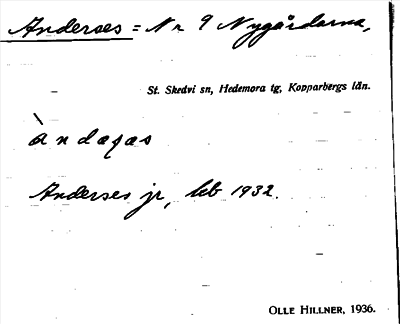 Anderses = Nr 9 Nygårdarna,
St. Skedvi sn, Hedemora tg, Kopparbergs län.
Anderses jr, leb 1932.
OLLE HILLNER, 1936.